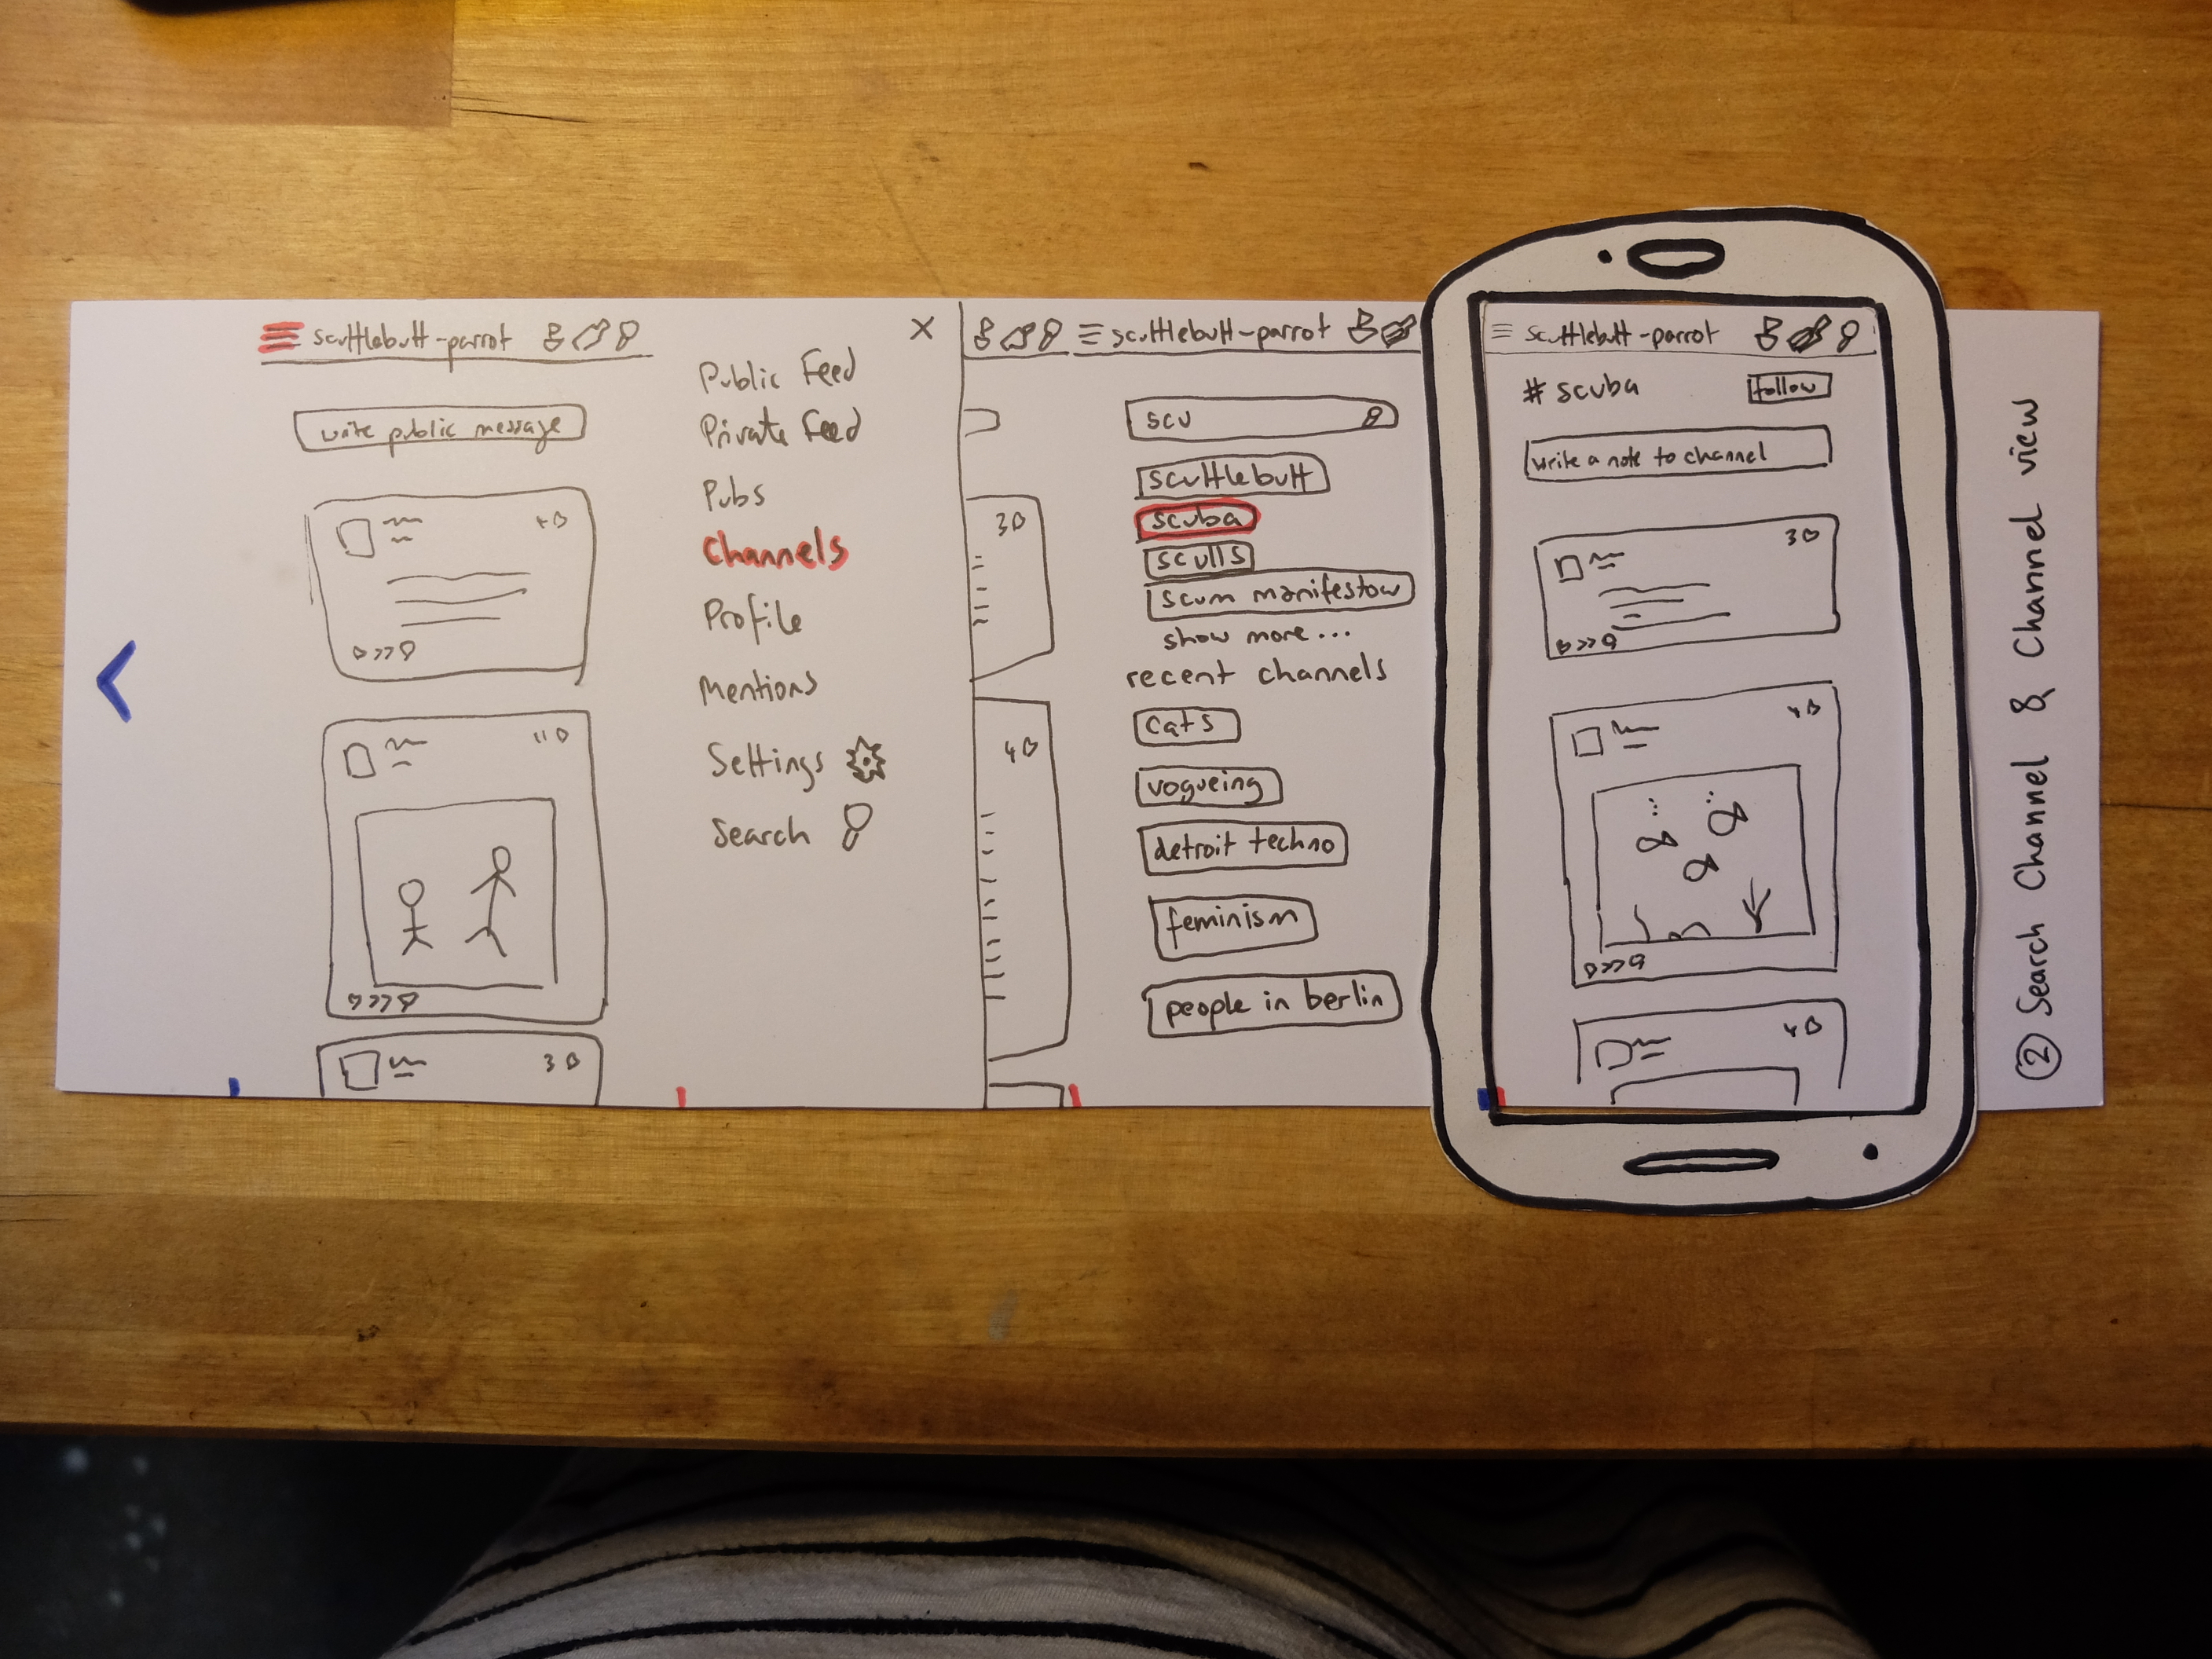 scuttlebutt-parrot
write public message
40
110
30
X
Public Feed
Private Feed
Pubs
Channels
Profile
Mentions
Settings
Search
3
4
scuttlebutt-parrot
scu
scuttlebutt
scuba
sculls
scum manifestow
show more...
recent channels
cats
vogueing
detroit techno
feminism
people in berlin
scuttlebutt-parrot
# scuba
follow
write a note to channel
3
4
4
② Search Channel & Channel view